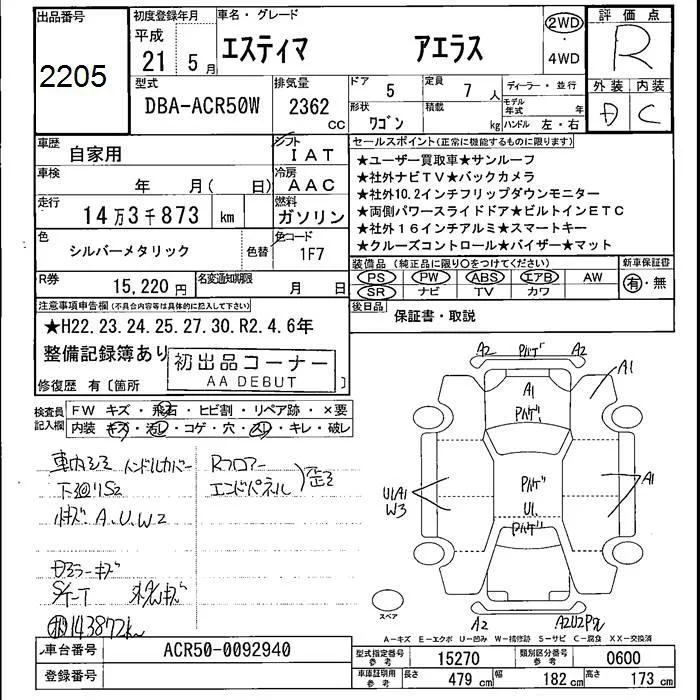 出品番号
2205
初度登録年月
平成
21年 5月
車名・グレード
エスティマ アエラス
2WD
・
4WD
評価点
R
外装 内装
D C
型式
DBA-ACR50W
排気量
2362 cc
ドア 5
定員 7 人
形状 ワゴン
積載 kg
ディーラー・並行
モデル年式 年
ハンドル 左・右
車歴 自家用
シフト IAT
車検 年 月( 日)
冷房 AAC
走行 14万3千873 km
燃料 ガソリン
色 シルバーメタリック
色替
色コード 1F7
R券 15,220円
名変通知期限 月 日
セールスポイント(正常に機能するものに限ります)
★ユーザー買取車★サンルーフ
★社外ナビTV★バックカメラ
★社外10.2インチフリップダウンモニター
★両側パワースライドドア★ビルトインETC
★社外16インチアルミ★スマートキー
★クルーズコントロール★バイザー★マット
装備品(純正品に限り○をつけてください)
PS PW ABS エアB AW
SR ナビ TV カワ
新車保証書
有・無
後日品
保証書・取説
注意事項申告欄(不具合内容等は具体的に記入して下さい)
★H22.23.24.25.27.30.R2.4.6年
整備記録簿あり
初出品コーナー
AA DEBUT
修復歴 有〔箇所 〕
検査員記入欄
FW キズ・飛石・ヒビ割・リペア跡・×要
内装 キズ・汚レ・コゲ・穴・スレ・キレ・破レ
車内シミ ハンドルカバー
下廻りS2
小キズA.U.W2
Rフロアー
エンドパネル
歪ミ
ミラーキズ
S/T-T
143872km
A2 Pハゲ A2
A1
Pハゲ
A1
Pハゲ
U1
Pハゲ
U1A1
W3
A1
A2
A2U2Pハゲ
スペア
A-キズ E-エクボ U-凹み W-補修跡 S-サビ C-腐食 XX-交換済
車台番号 ACR50-0092940
登録番号
型式指定番号 参考 15270
類別区分番号 参考 0600
車庫証明用 参考 長さ 479 cm 幅 182 cm 高さ 173 cm